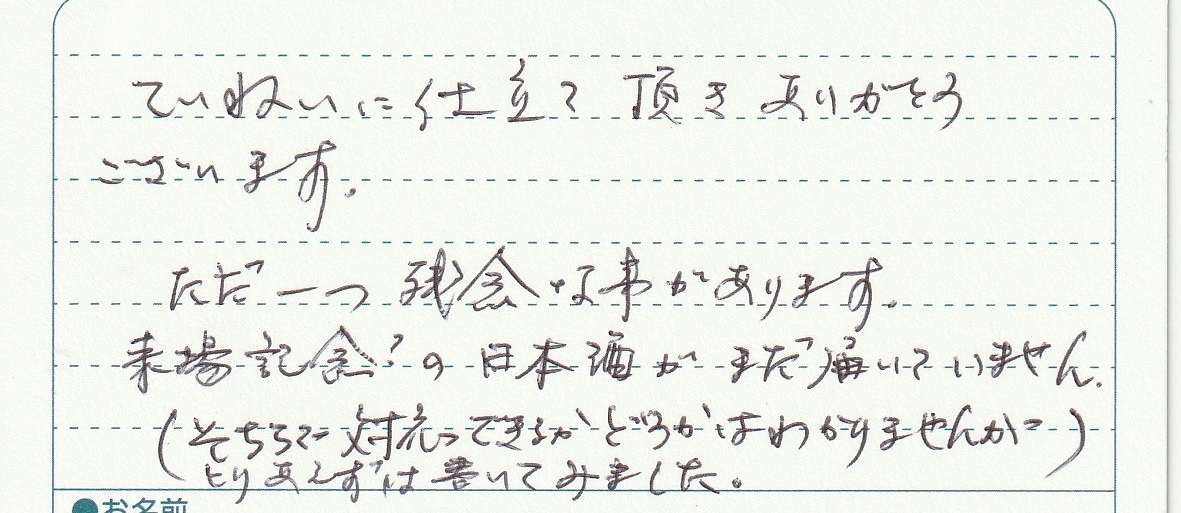 ていねいに仕立て頂きありがとう
ございます。
ただ一つ残念な事があります。
来場記念?の日本酒がまだ届いていません。
(そちらで対応できるかどうかはわかりませんが)
とりあえずは書いてみました。
●お名前